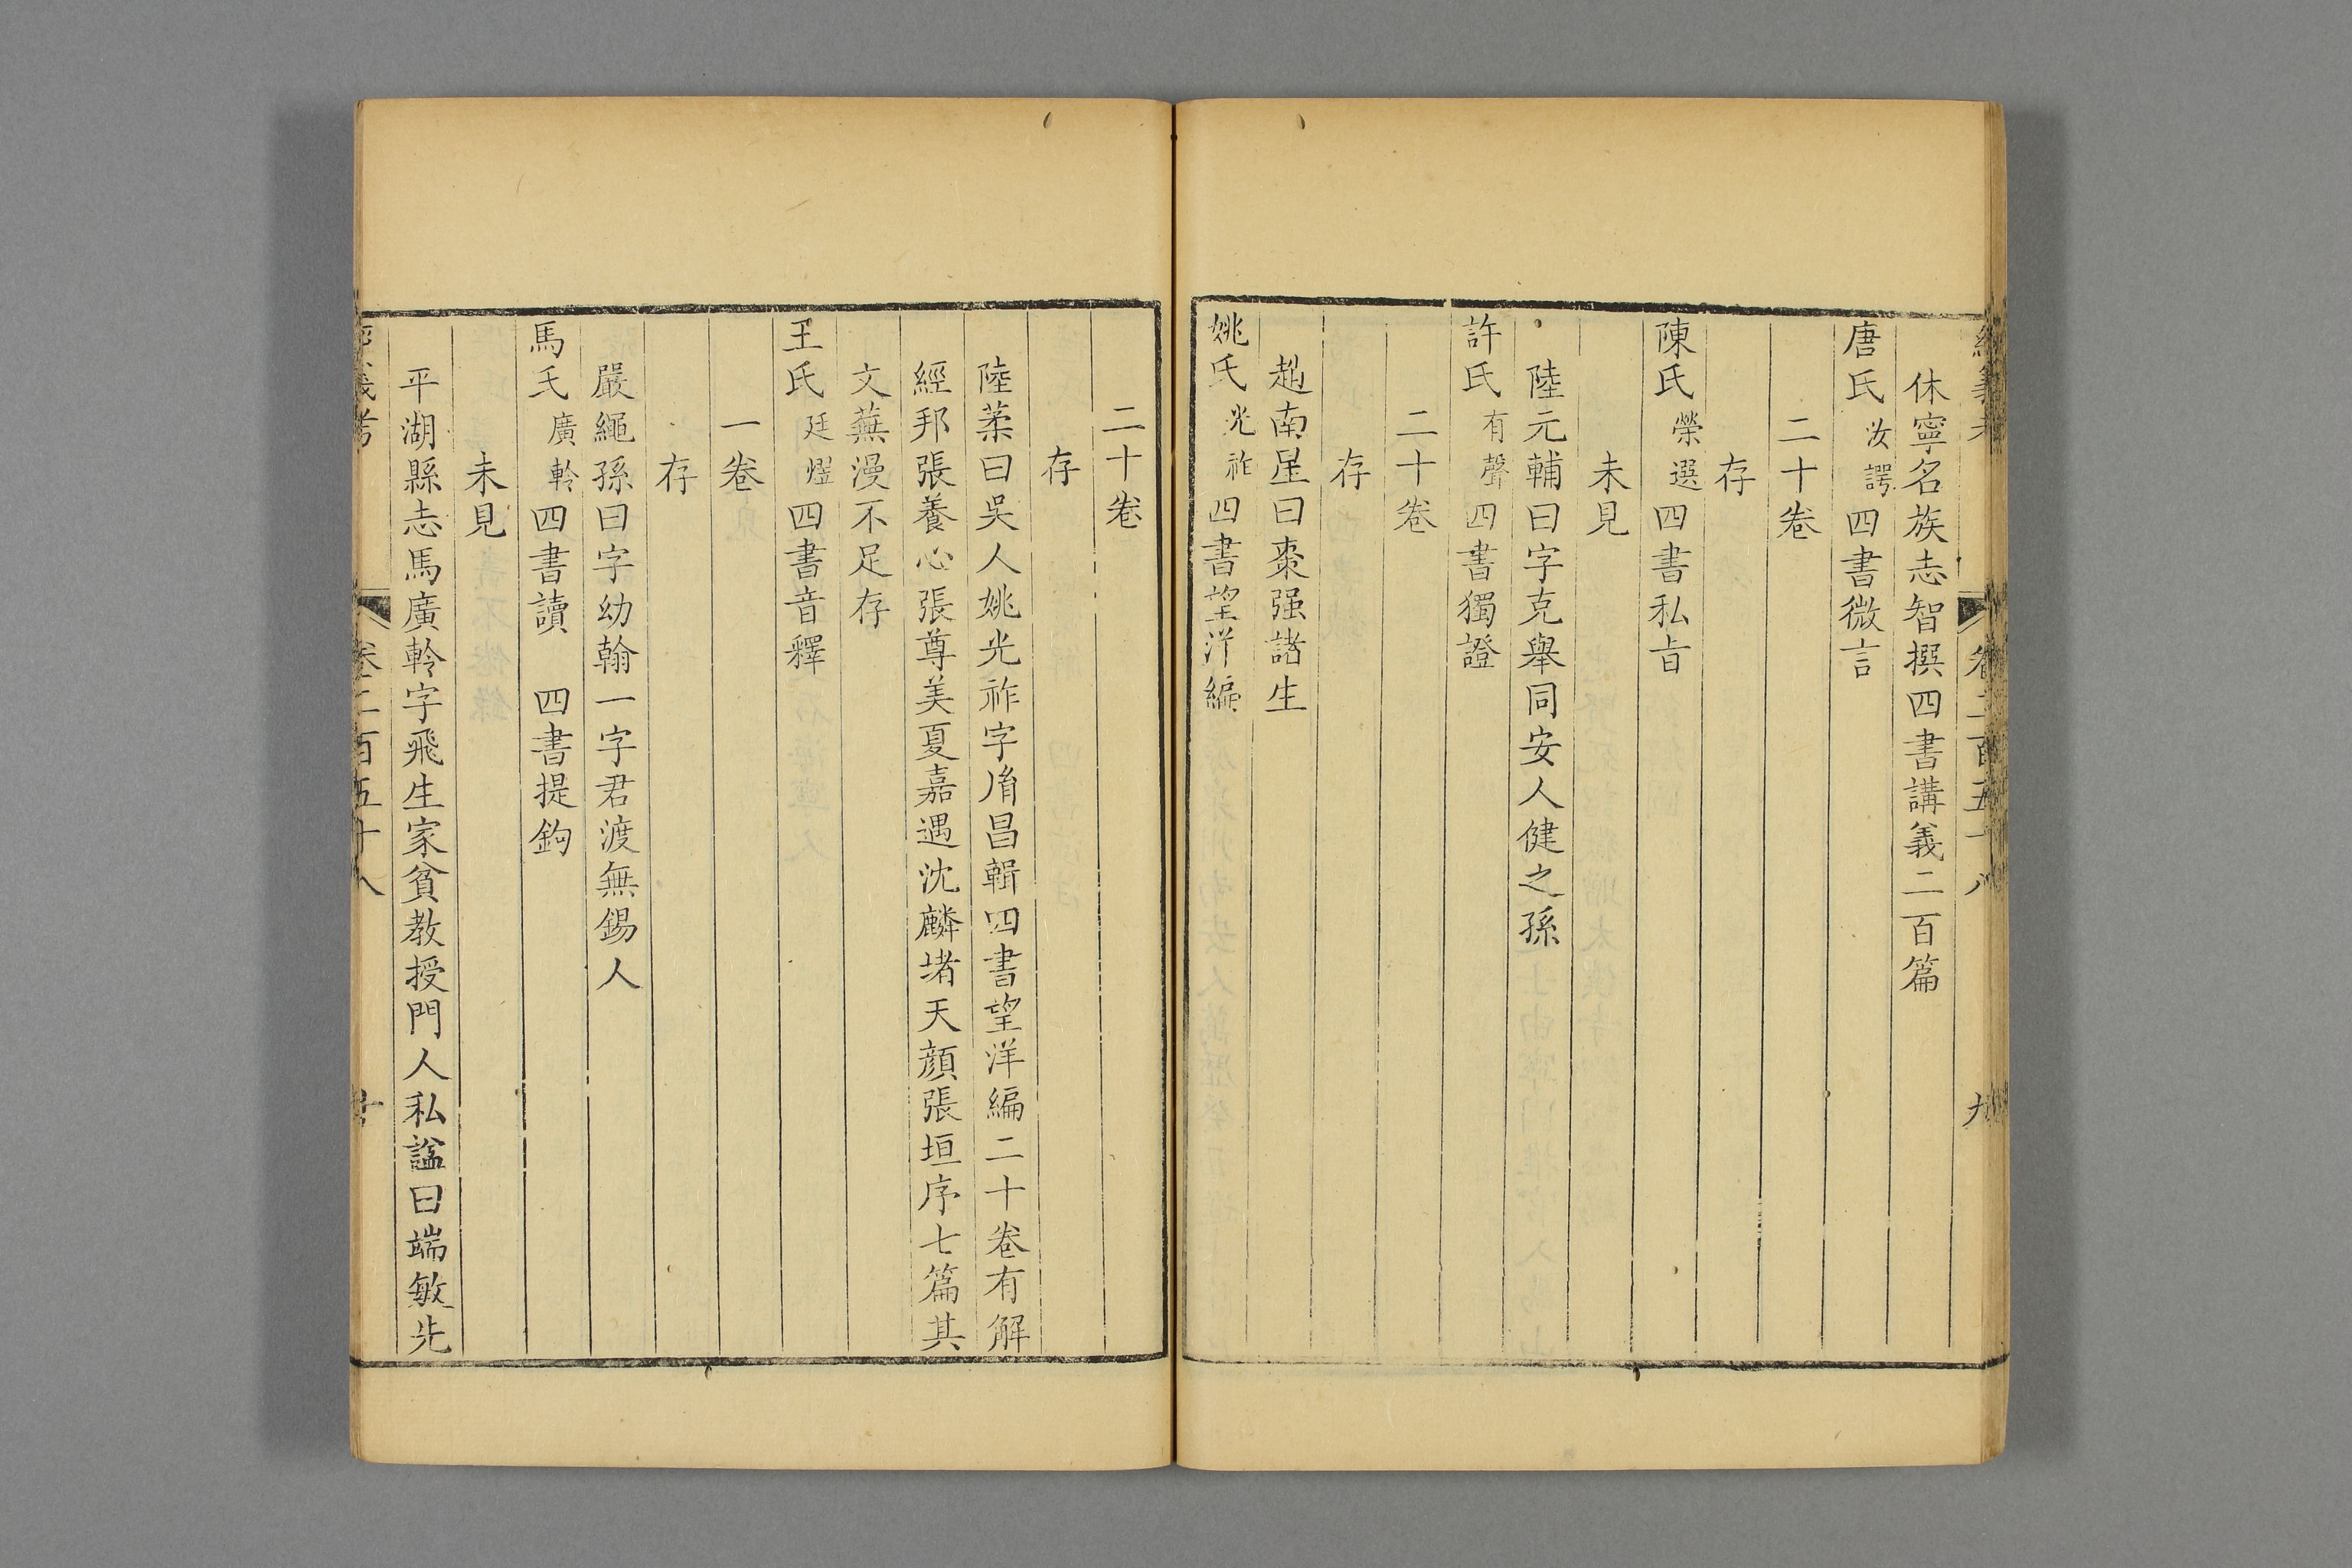 經義考 卷二百五十八 九
休寧名族志智撰四書講義二百篇
唐氏汝諤四書微言
二十卷
存
陳氏榮選四書私旨
未見
陸元輔曰字克舉同安人健之孫
許氏有聲四書獨證
二十卷
存
趙南星曰棗强諸生
姚氏光祚四書望洋編
二十卷
存
陸葇曰吳人姚光祚字胤昌輯四書望洋編二十卷有解
經邦張養心張尊美夏嘉遇沈麟堵天顏張垣序七篇其
文蕪漫不足存
王氏廷煜四書音釋
一卷
存
嚴繩孫曰字幼翰一字君渡無錫人
馬氏廣軨四書讀 四書提鉤
未見
平湖縣志馬廣軨字飛生家貧教授門人私諡曰端敏先
經義考 卷二百五十八 十